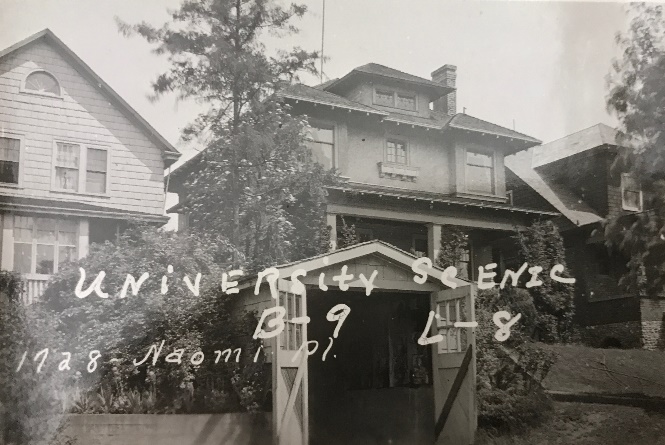 University Scenic
B-9 L-8
1728- Naomi Pl.